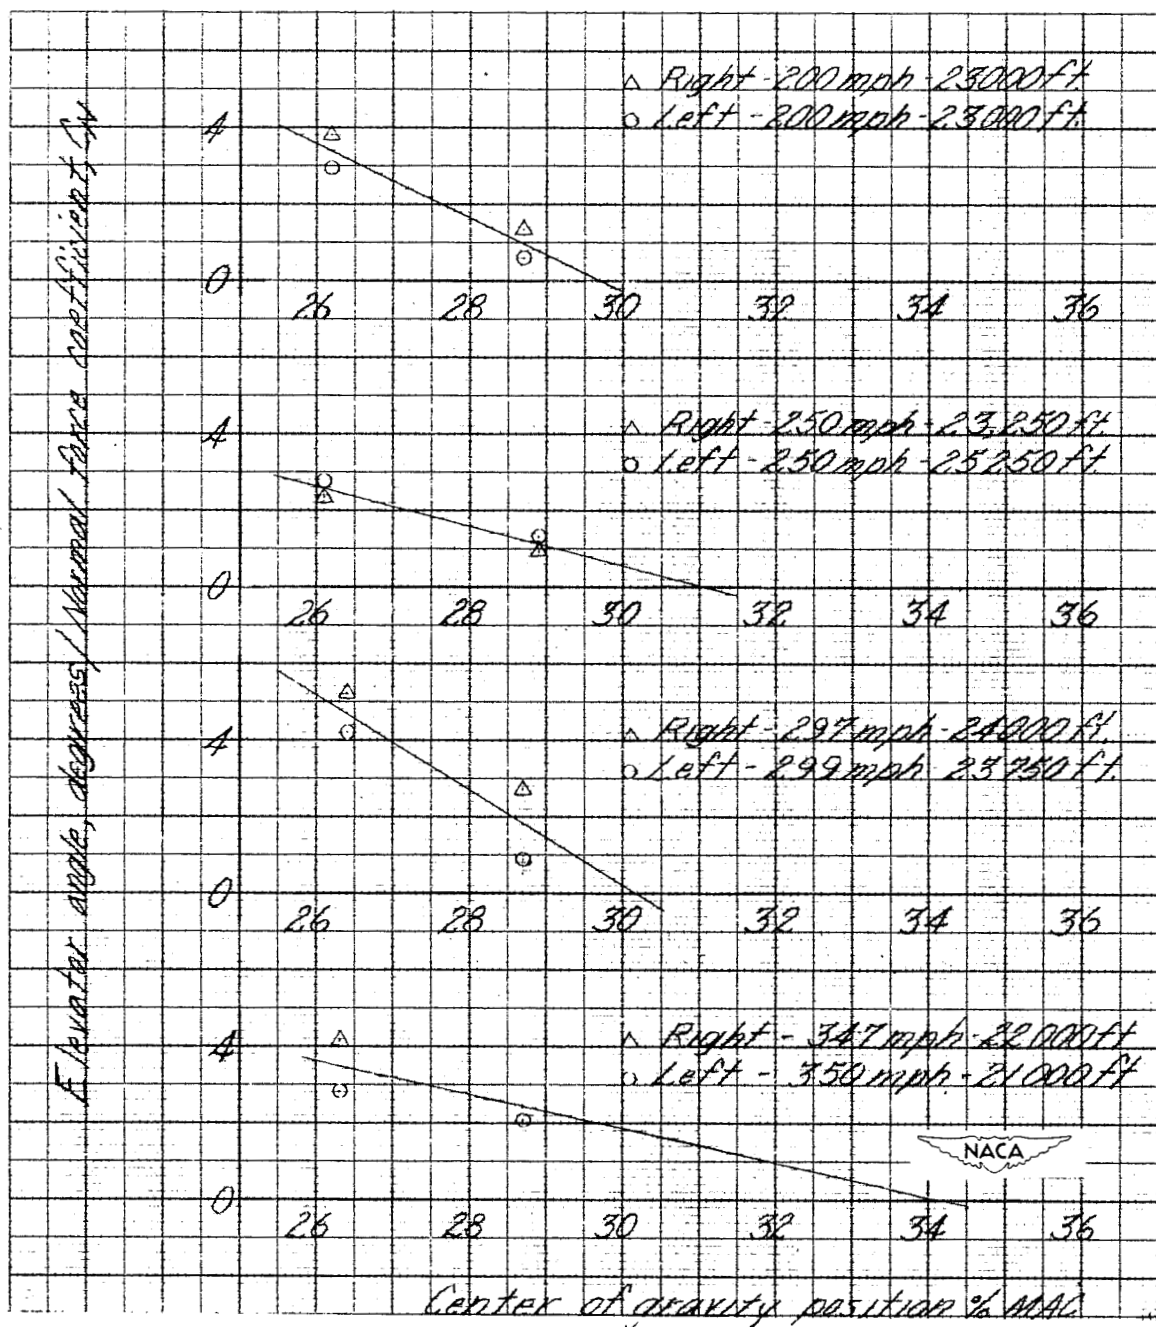 Elevator angle, degrees/Normal force coefficient, CN
△ Right - 200 mph - 23000 ft.
○ Left - 200 mph - 23000 ft.
4
0
26 28 30 32 34 36
△ Right - 250 mph - 23,250 ft.
○ Left - 250 mph - 25250 ft.
4
0
26 28 30 32 34 36
△ Right - 297 mph - 24000 ft.
○ Left - 299 mph - 23750 ft.
4
0
26 28 30 32 34 36
△ Right - 347 mph - 22000 ft
○ Left - 350 mph - 21000 ft
4
NACA
0
26 28 30 32 34 36
Center of gravity position % MAC